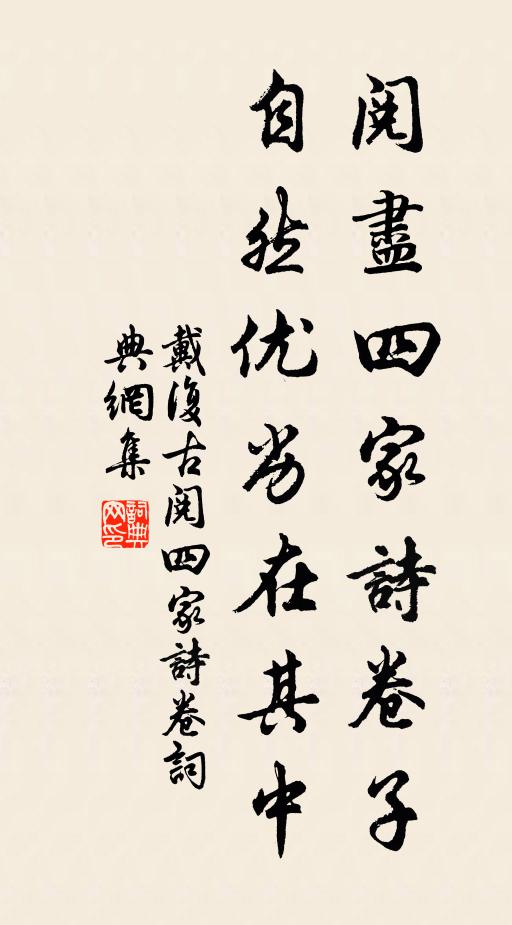 閱盡四家詩卷子
自然优劣在其中
戴復古閱四家詩卷詞
典網集
詞典
网印